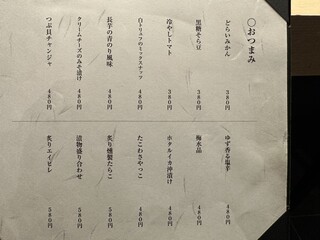 〇おつまみ
どらいみかん 380円
黒糖そら豆 380円
冷やしトマト 380円
白トリュフのミックスナッツ 480円
長芋の青のり風味 480円
クリームチーズのみそ漬け 480円
つぶ貝チャンジャ 480円
ゆず香る塩辛 480円
梅水晶 480円
ホタルイカ沖漬け 480円
たこわさやっこ 480円
炙り燻製たらこ 580円
漬物盛り合わせ 580円
炙りエイヒレ 580円